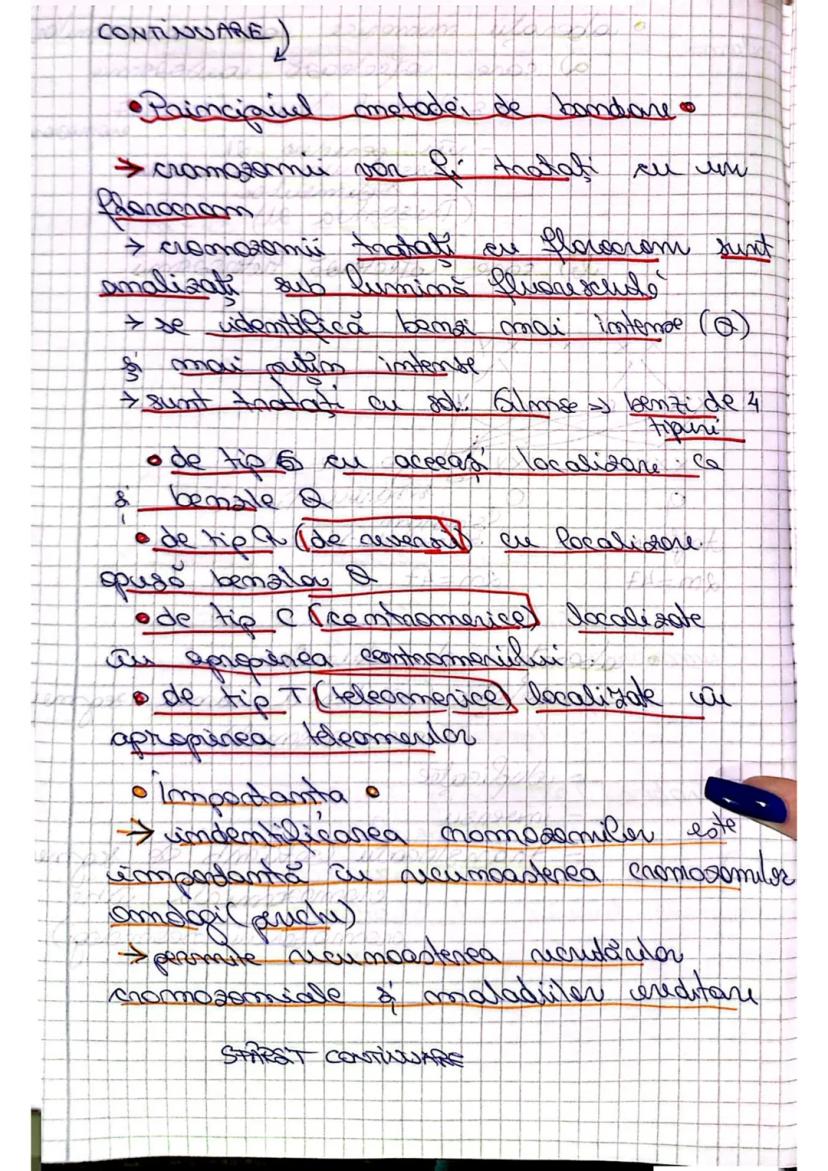 CONTINUARE
• Principiul metodei de bandare •
→ cromozomii vor fi tratați cu un
florocrom
→ cromozomii tratați cu florocrom sunt
analizați sub lumină fluorescendă
→ se identifică benzi mai intense (Q)
și mai puțin intense
→ sunt tratați cu sol. Gimse => benzi de 4
tipuri
• de tip G cu aceeași localizare ca
și benzile Q
• de tip R (de reversi) cu localizare
opusă benzilor Q
• de tip C (centromerice) localizate
în apropirea centromerului
• de tip T (teleomerice) localizate în
apropirea teleomerilor
• Importanta •
→ indentificarea cromozomilor este
importantă în recunoasterea cromozomilor
omologi (perechi)
→ permite recunoasterea
cromozomiale și maladiilor ereditare
CONTINUARE